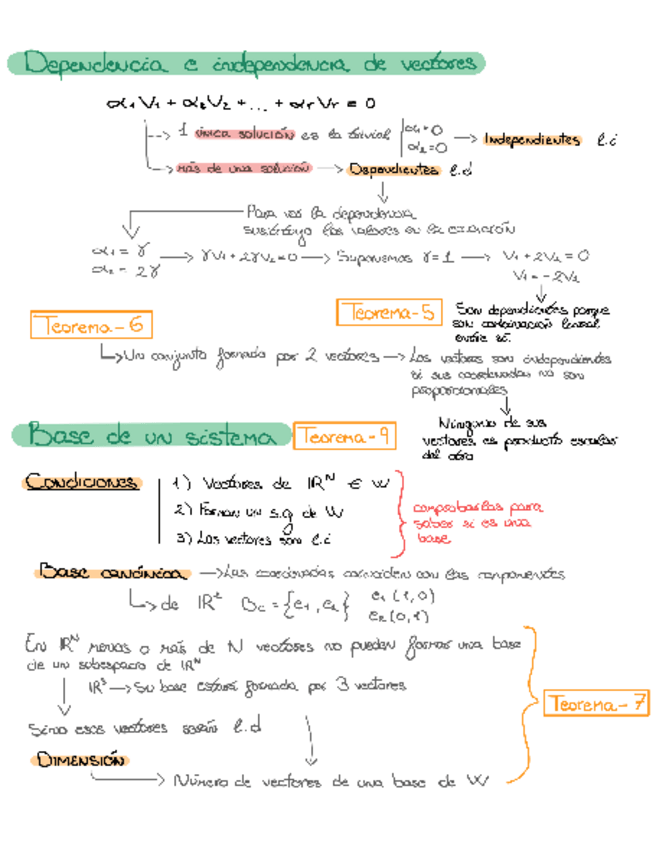 Dependencia e independencia de vectores
α₁V₁ + α₂V₂ + ... + αrVr = 0
--> 1 única solución es la trivial | α₁=0 α₂=0 → Independientes l.i
→ más de una solución → Dependientes l.d
Para ver la dependencia
sustituyo los valores en la ecuación
α₁ = γ
α₂ = 2γ
→ γV₁ + 2γV₂ = 0 → Suponemos γ = 1 → V₁ + 2V₂ = 0
V₁ = -2V₂
Teorema-5
Son dependientes porque
son combinación lineal
entre sí.
Teorema-6
Un conjunto formado por 2 vectores → Los vectores son independientes
si sus coordenadas no son
proporcionales
Ninguno de sus
vectores es producto escalar
del otro
Base de un sistema
Teorema-9
Condiciones
1) Vectores de IRᴺ ∈ W
2) Forman un s.g de W
3) Los vectores son l.i
comprobarlas para
saber si es una
base
Base canónica → Las coordenadas coinciden con las componentes
de IR² Bc = {e₁, e₂} e₁ (1,0)
e₂ (0,1)
En IRᴺ menos o más de N vectores no pueden formar una base
de un subespacio de IRᴺ
IR³ → Su base estará formada por 3 vectores
Teorema-7
Sino esos vectores serán l.d
Dimensión
Número de vectores de una base de W